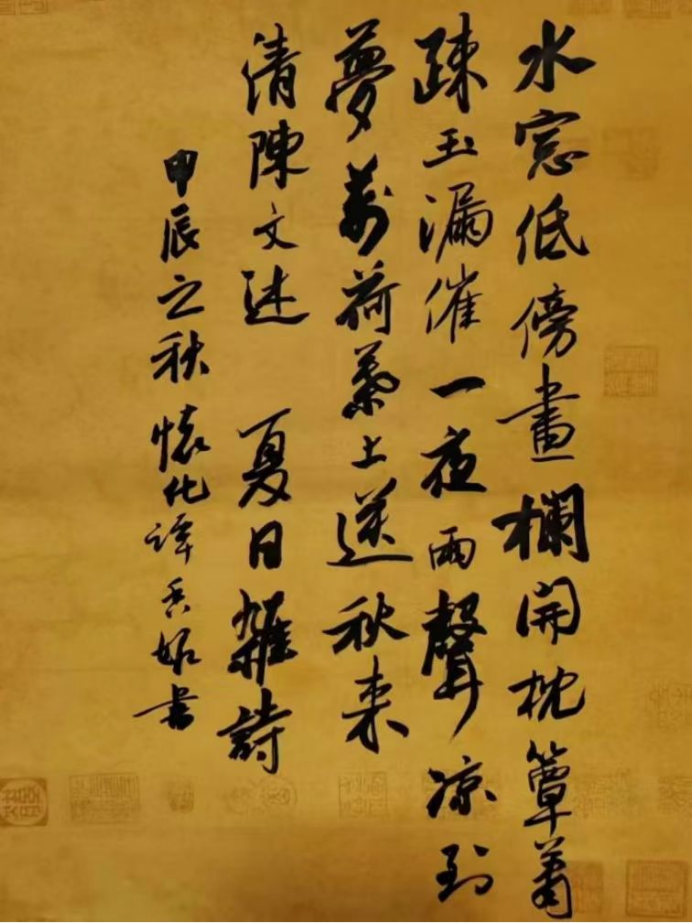 水窓低傍畫欄開枕簟蕭
踈玉漏催一夜雨聲凉到
夢萬荷葉上送秋来
清陳文述 夏日雜詩
甲辰之秋懷化譚書